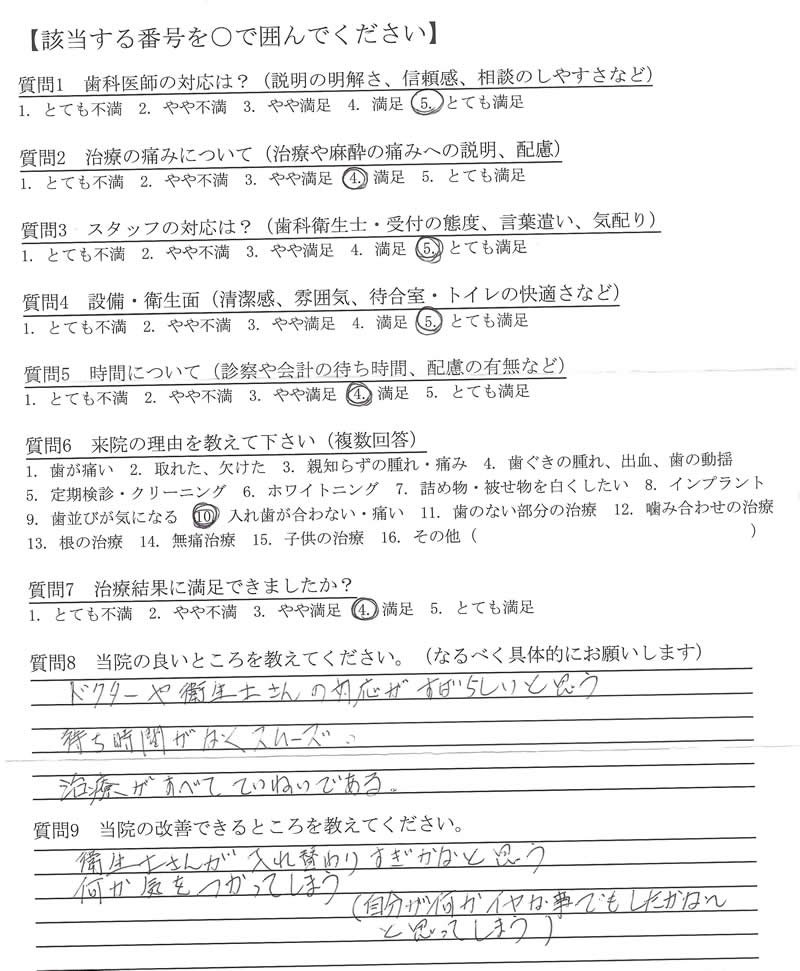 【該当する番号を○で囲んでください】
質問1 歯科医師の対応は?(説明の明解さ、信頼感、相談のしやすさなど)
1. とても不満 2. やや不満 3. やや満足 4. 満足 5. とても満足
質問2 治療の痛みについて(治療や麻酔の痛みへの説明、配慮)
1. とても不満 2. やや不満 3. やや満足 4. 満足 5. とても満足
質問3 スタッフの対応は?(歯科衛生士・受付の態度、言葉遣い、気配り)
1. とても不満 2. やや不満 3. やや満足 4. 満足 5. とても満足
質問4 設備・衛生面(清潔感、雰囲気、待合室・トイレの快適さなど)
1. とても不満 2. やや不満 3. やや満足 4. 満足 5. とても満足
質問5 時間について(診察や会計の待ち時間、配慮の有無など)
1. とても不満 2. やや不満 3. やや満足 4. 満足 5. とても満足
質問6 来院の理由を教えて下さい(複数回答)
1. 歯が痛い 2. 取れた、欠けた 3. 親知らずの腫れ・痛み 4. 歯ぐきの腫れ、出血、歯の動揺
5. 定期検診・クリーニング 6. ホワイトニング 7. 詰め物・被せ物を白くしたい 8. インプラント
9. 歯並びが気になる 10 入れ歯が合わない・痛い 11. 歯のない部分の治療 12. 噛み合わせの治療
13. 根の治療 14. 無痛治療 15. 子供の治療 16. その他( )
質問7 治療結果に満足できましたか?
1. とても不満 2. やや不満 3. やや満足 4. 満足 5. とても満足
質問8 当院の良いところを教えてください。(なるべく具体的にお願いします)
ドクターや衛生士さんの対応がすばらしいと思う
待ち時間がなくスムーズ。
治療がすべてていねいである。
質問9 当院の改善できるところを教えてください。
衛生士さんが入れ替わりすぎかなと思う
何か気をつかってしまう
(自分が何かイヤな事でもしたかな〜
と思ってしまう)